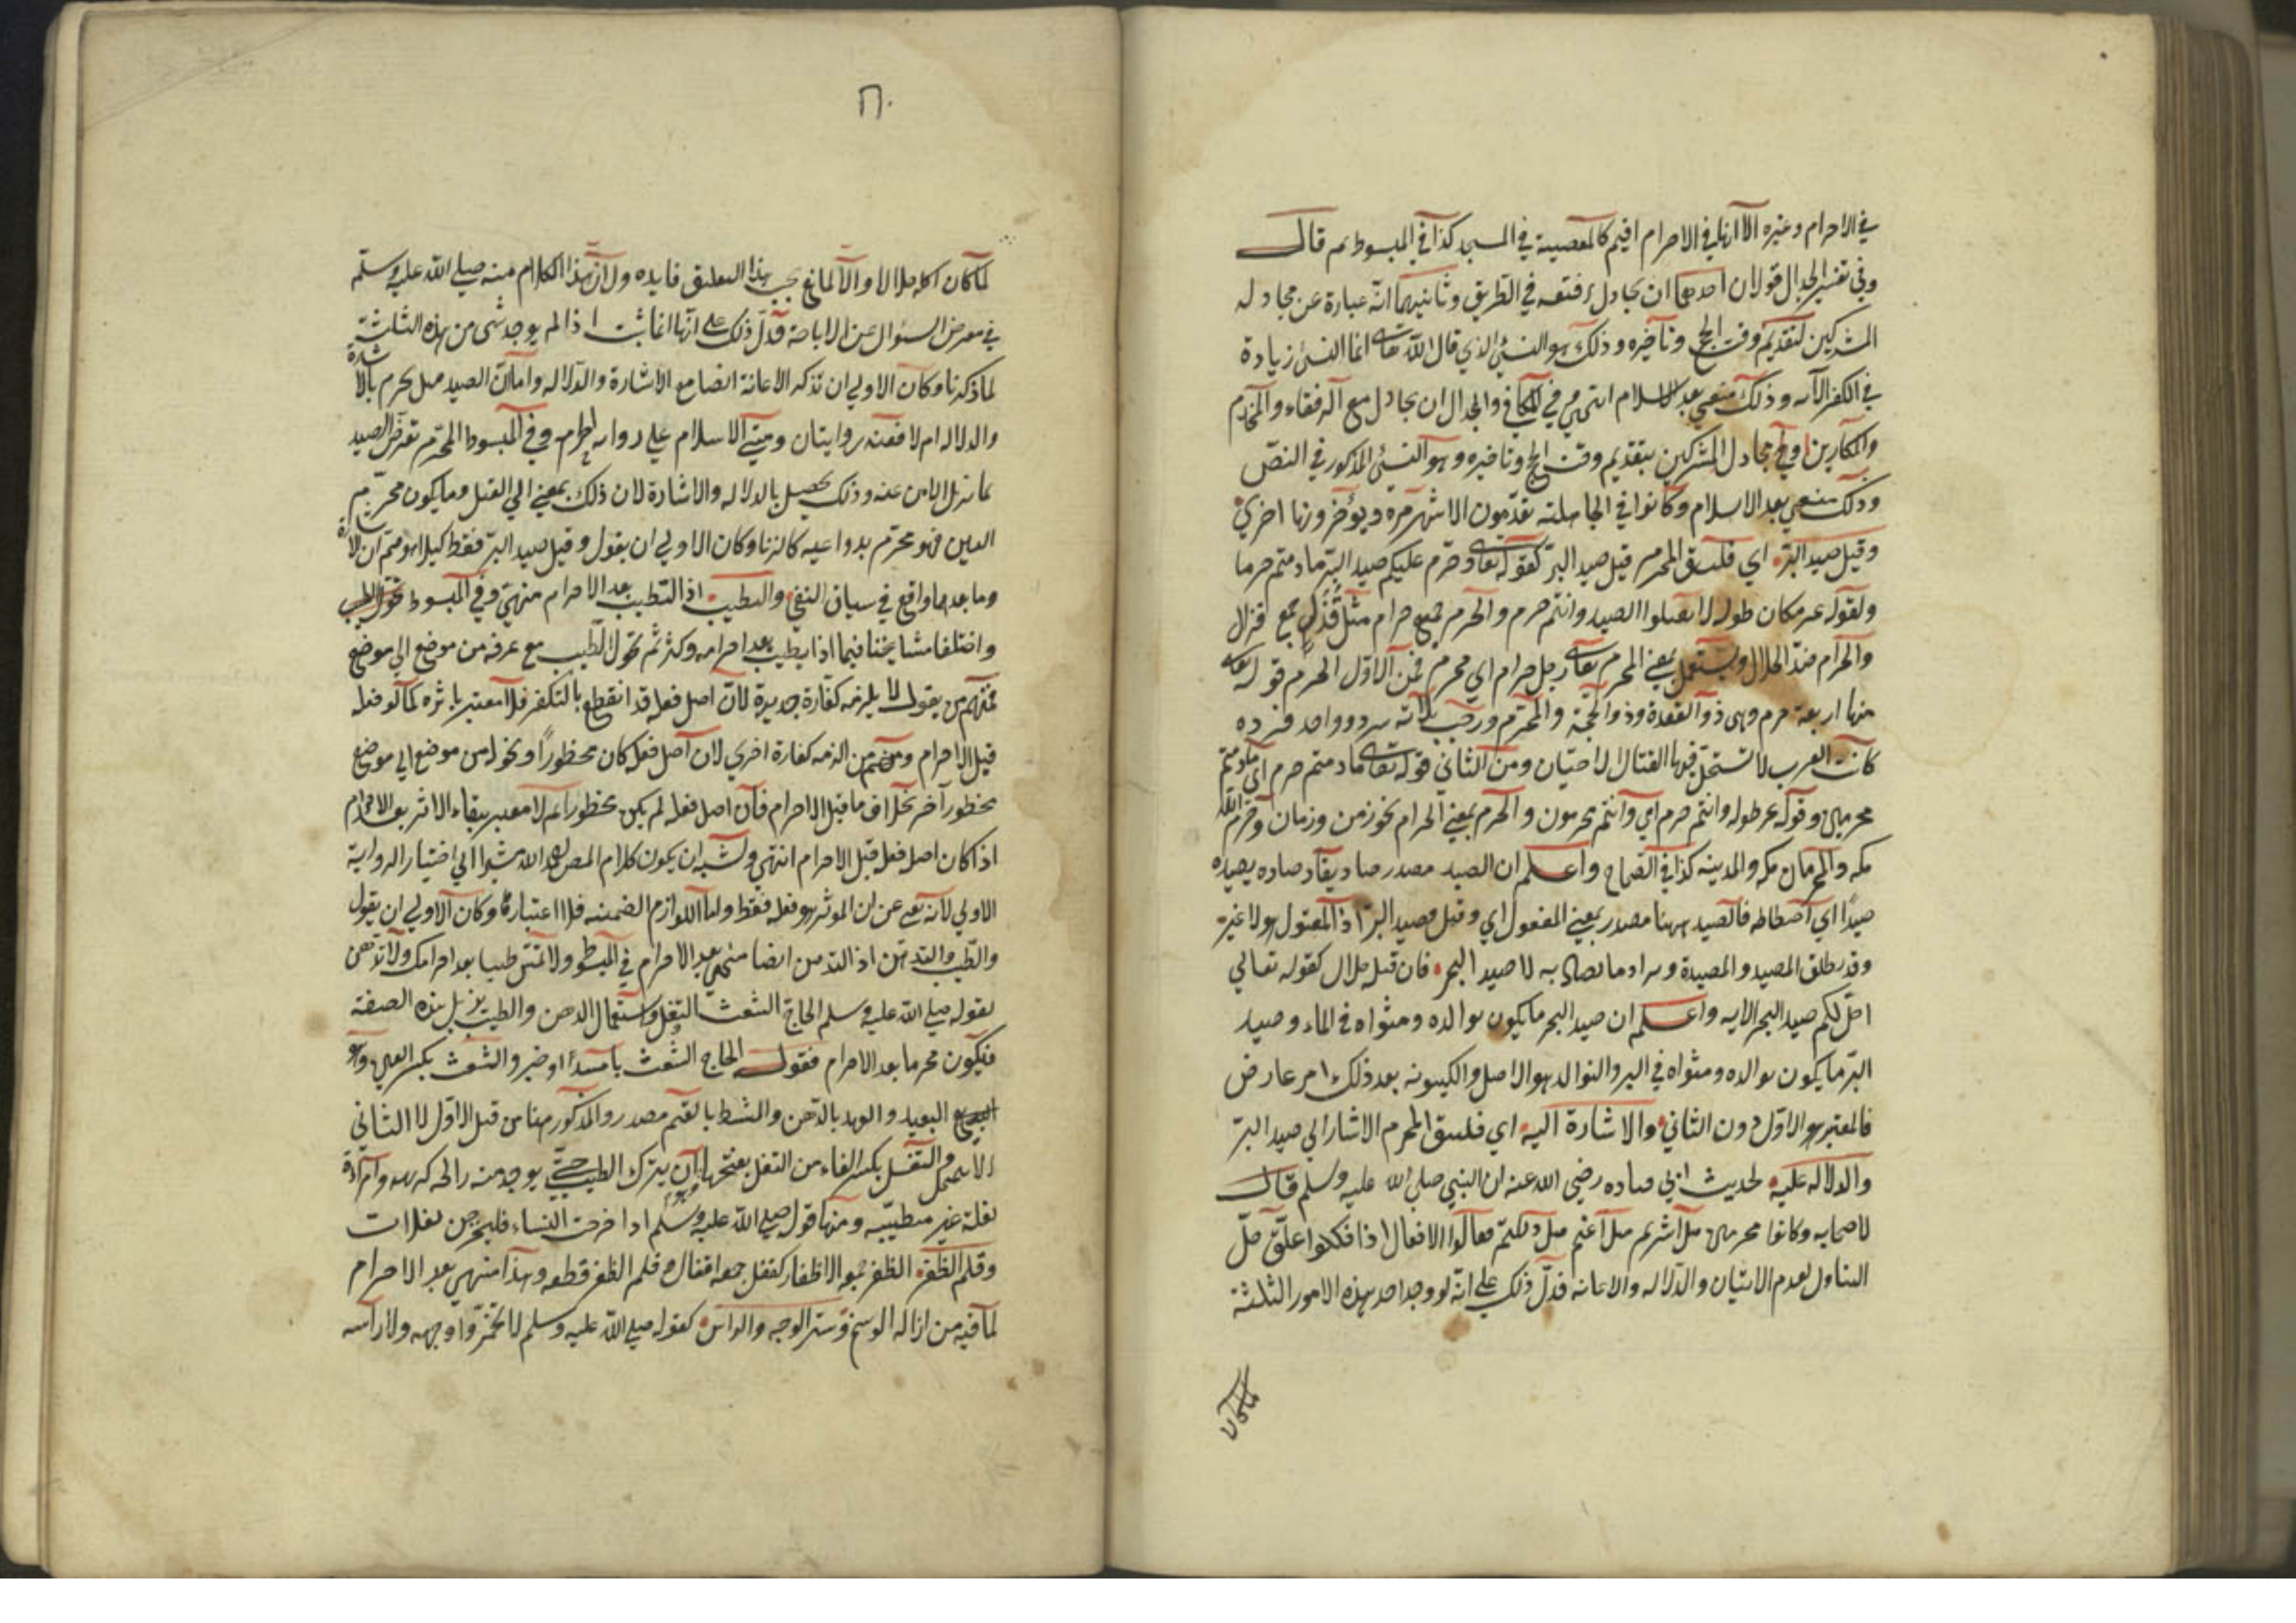 في الاحرام وغيره الا انها في الاحرام اقبح كالمعصية في المسجد كذا في المبسوط ثم قال
وفي تفسير الجدال قولان احدهما ان يجادل رفقته في الطريق وثانيهما انه عبارة عن مجادله
المشركين لتقديم وقت الحج وتأخيره وذلك هو النسئ الذي قال الله تعالى انما النسئ زيادة
في الكفر الآيه وذلك منفي بعد الاسلام انتهى في الكافي والجدال ان يجادل مع الرفقاء والخدام
والمكارين او مجادل المشركين بتقديم وقت الحج وتاخيره وهو النسئ المذكور في النص
وذلك منفي بعد الاسلام وكانوا في الجاهلية يقدمون الاشهر مرة ويؤخرونها اخرى
وقيل صيد البر اي فليتق المحرم قتل صيد البر كقوله تعالى وحرم عليكم صيد البر ما دمتم حرما
ولقوله عز مكان طوله لا تقتلوا الصيد وانتم حرم والحرم جمع حرام مثل قذل جمع قذال
والحرام ضد الحلال ويستعمل بمعنى المحرم يقال رجل حرام اي محرم فمن الاول الحرم قوله تعالى
منها اربعة حرم وهي ذو القعدة وذو الحجة والمحرم ورجب ثلاثه سرد وواحد فرد
كانت العرب لا تستحل فيها القتال الا حيان ومن الثاني قوله تعالى ما دمتم حرم اي ما دمتم
محرمين وقوله عز طوله وانتم حرم اي وانتم محرمون والحرم بمعنى الحرام نحو زمن وزمان وحرم الله
مكه والحرمان مكه والمدينه كذا في الصحاح واعلم ان الصيد مصدر صاد يقال صاده يصيده
صيدا اي اصطاده فالصيد ههنا مصدر بمعنى المفعول اي وقتل مصيد البر اذ المقتول هو لا غير
وقد يطلق المصيد والمصيدة ويراد ما يصاد به لا صيد البحر فان قيل حلال كقوله تعالي
احل لكم صيد البحر الايه واعلم ان صيد البحر ما يكون توالده ومثواه في الماء وصيد
البر ما يكون توالده ومثواه في البر والتوالد هو الاصل والكينونه بعد ذلك امر عارض
فالمعتبر هو الاول دون الثاني والاشارة اليه اي فليتق المحرم الاشارا لي صيد البر
والدلاله عليه لحديث ابي قتاده رضي الله عنه ان النبي صلى الله عليه وسلم قال
لاصحابه وكانوا محرمين هل اشرتم هل اعنتم هل دللتم فقالوا لا فقال اذا فكلوا علق حل
التناول لعدم الاتيان والدلاله والاعانه فدل ذلك على انه لو وجد احد هذه الامور الثلثة
٦٠
لما كان اكله حلالا والا لما في بهذا التعليق فايده ولان هذا الكلام منه صلى الله عليه وسلم
في معرض السئوال عن الاباحة فدل ذلك على انها انما تثبت اذا لم يوجد شئ من هذه الثلثة
لما ذكرنا وكان الاولي ان تذكر الاعانة ايضا مع الاشارة والدلاله واما ان الصيد هل يحرم بالاشارة
والدلاله ام لا فعنه روايتان ومشى الاسلام على روايه الحرام وفي المبسوط المحرم تعرض الصيد
بما يزيل الامن عنه وذلك يحصل بالدلاله والاشارة لان ذلك بمعنى القتل وما يكون محرم
العين فهو محرم بدواعيه كالزنا وكان الاولي ان يقول وقيل صيد البر فقط كيلا يتوهم ان الاشارة
وما بعدها واقع في سياق النفي والتطيب اذ التطيب بعد الاحرام منهي وفي المبسوط
واختلفا مشايخنا فيما اذا تطيب بعد احرامه وكثر ثم تحول الطيب مع عرقه من موضع الي موضع
فمنهم من يقول لا يلزمه كفارة جديدة لان اصل فعله قد انقطع بالتكفر فلا معتبر باثره كما لو فعله
قبل الاحرام ومنهم من الزمه كفارة اخرى لان اصل فعله كان محظورا وتحوله من موضع الي موضع
محظور آخر بخلاف ما قبل الاحرام فان اصل فعله لم يكن محظورا ثم لا معتبر ببقاء الاثر بعد الاحرام
اذا كان اصل فعل قبل الاحرام انتهى ويشبه ان يكون كلام المص رحمه الله مشيرا الي اختيار الروايه
الاولي لانه نهى عن ان الموثر هو فعله فقط واما اللوازم الضمنيه فلا اعتبار لها وكان الاولي ان يقول
والطيب والتدهن اذ التدهن ايضا منهي بعد الاحرام في المبسوط ولا تمس طيبا بعد احرامك ولا تدهن
لقوله صلى الله عليه وسلم الحاج الشعث التفل واستعمال الدهن والطيب يزيل هذه الصفة
فيكون محرما بعد الاحرام فقوله الحاج الشعث يا مبتدأ وخبر والشعث بكسر العين وهو
البعيد والعهد بالدهن والمشط بالفتح مصدر والمذكور هنا من قبل الاول لا الثاني
والتفل بكسر الفاء من التفل بفتحها وهو ان يترك الطيب حتى يوجد منه رائحه كريهه وامرأة
تفلة غير متطيبه ومنها قوله صلى الله عليه وسلم اذا خرجت النساء فليخرجن تفلات
وقلم الظفر الظفر جمعه الاظفار كقفل جمعه اقفال وقلم الظفر قطعه وهذا منهي بعد الاحرام
لما فيه من ازاله الوسخ وستر الوجه والراس كقوله صلى الله عليه وسلم لا تخمروا وجهه ولا رأسه